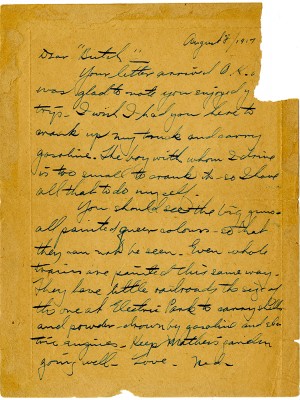 August 8, 1917
Dear "Dutch"
Your letter arrived O.K.
was glad to note you enjoyed
trip. I wish I had you here to
crank up my truck and carry
gasoline. The boy with whom I drive
is too small to crank it so I have
all that to do myself.
You should see the big guns
all painted queer colours so that
they can not be seen. Even whole
trains are painted this same way.
They have little railroads the size of
the one at Electric Park to carry shells
and powder drawn by gasoline and elec
tric engines. Keep Mother's garden
going well. Love. Ned.